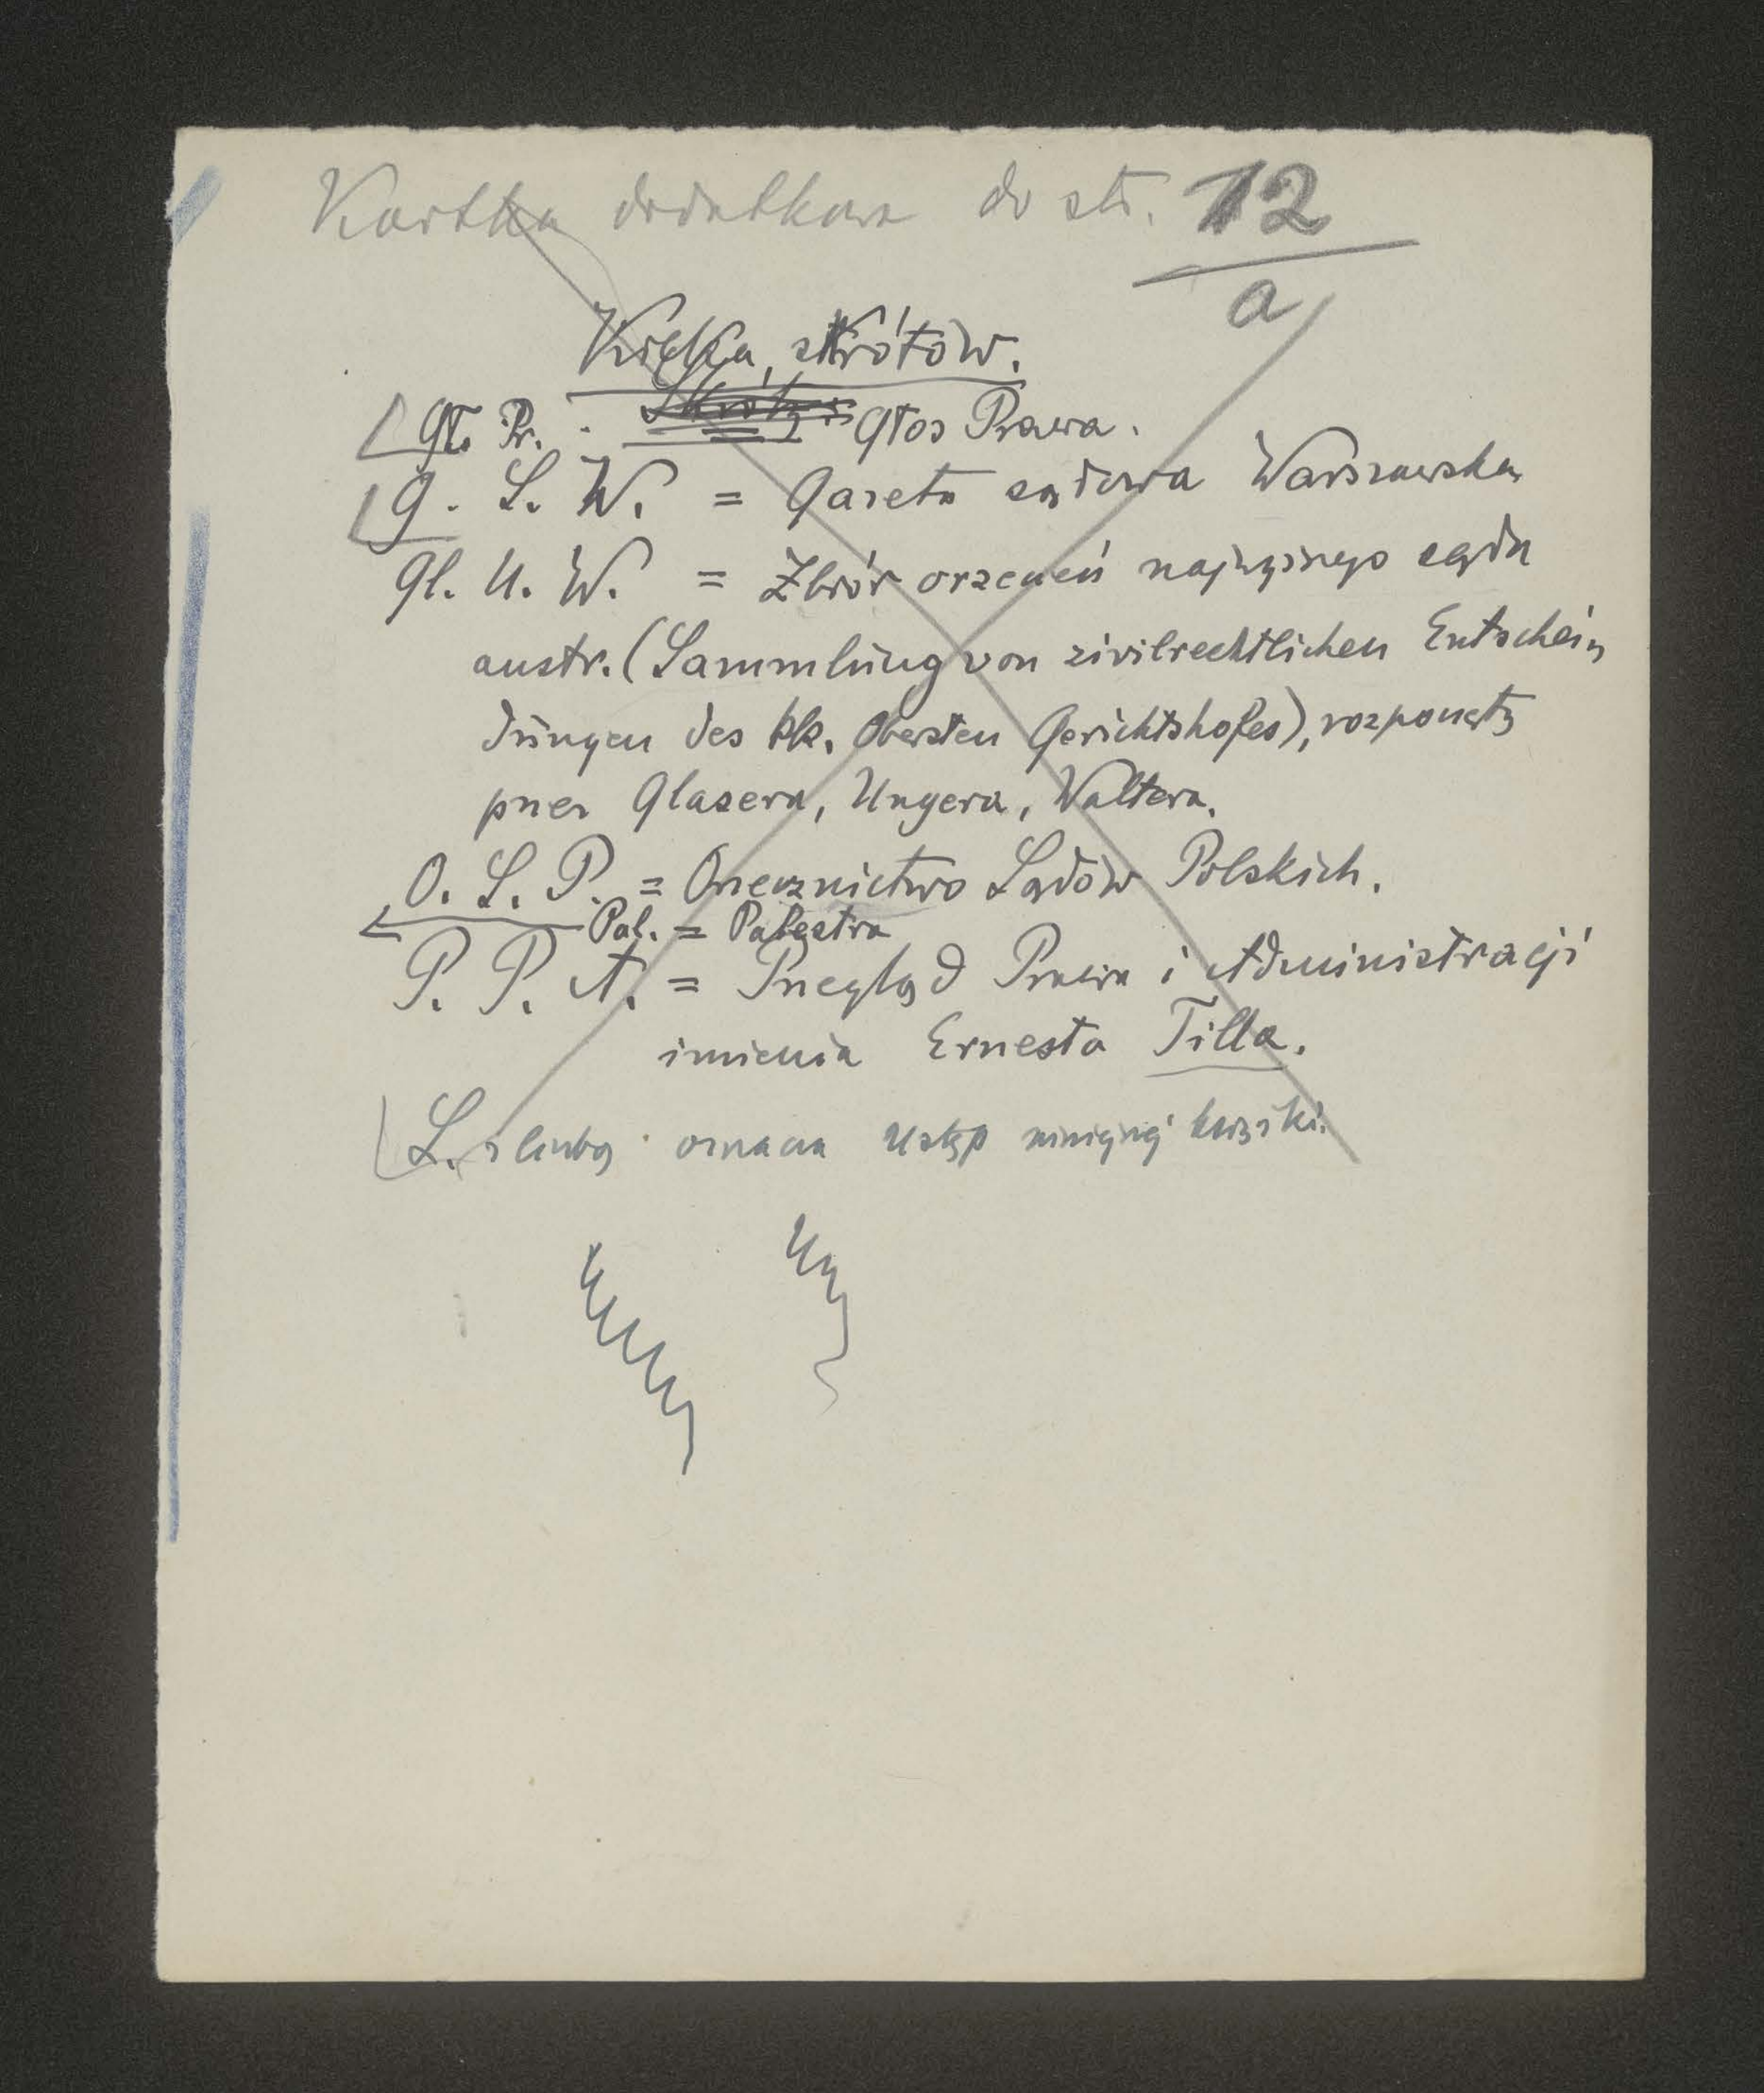 Kartka dodatkowa do str. 12
a
Kilka skrótów.
Gł. Pr. Skróty: Głos Prawa.
G. S. W. = Gazeta sądowa Warszawska
Gl. U. W. = Zbiór orzeczeń najwyższego sądu
austr. (Sammlung von zivilrechtlichen Entschei-
dungen des kk. Obersten Gerichtshofes), rozpoczęty
przez Glasera, Ungera, Waltera.
O. S. P. = Orzecznictwo Sądów Polskich.
Pal. = Palestra
P. P. A. = Przegląd Prawa i Administracji
imienia Ernesta Tilla.
L. z liczbą oznacza ustęp niniejszej książki.